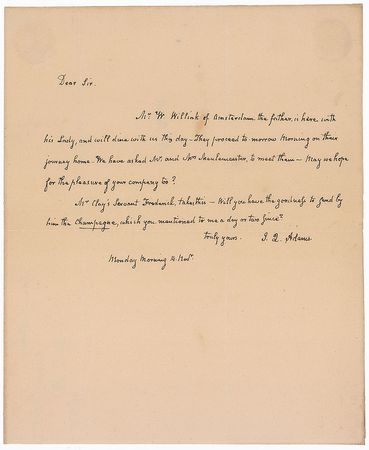 Dear Sir.
Mr. W. Willink of Amsterdam the father, is here with
his Lady, and will dine with us this day — They proceed to morrow Morning on their
journey home. We have asked Mr. and Mrs Meulemeester, to meet them — May we hope
for the pleasure of your company too?
Mr Clay's Servant Frederick, takes this — Will you have the goodness to send by
him the Champagne, which you mentioned to me a day or two since?
truly yours. J. Q. Adams
Monday Morning 4. Novr.